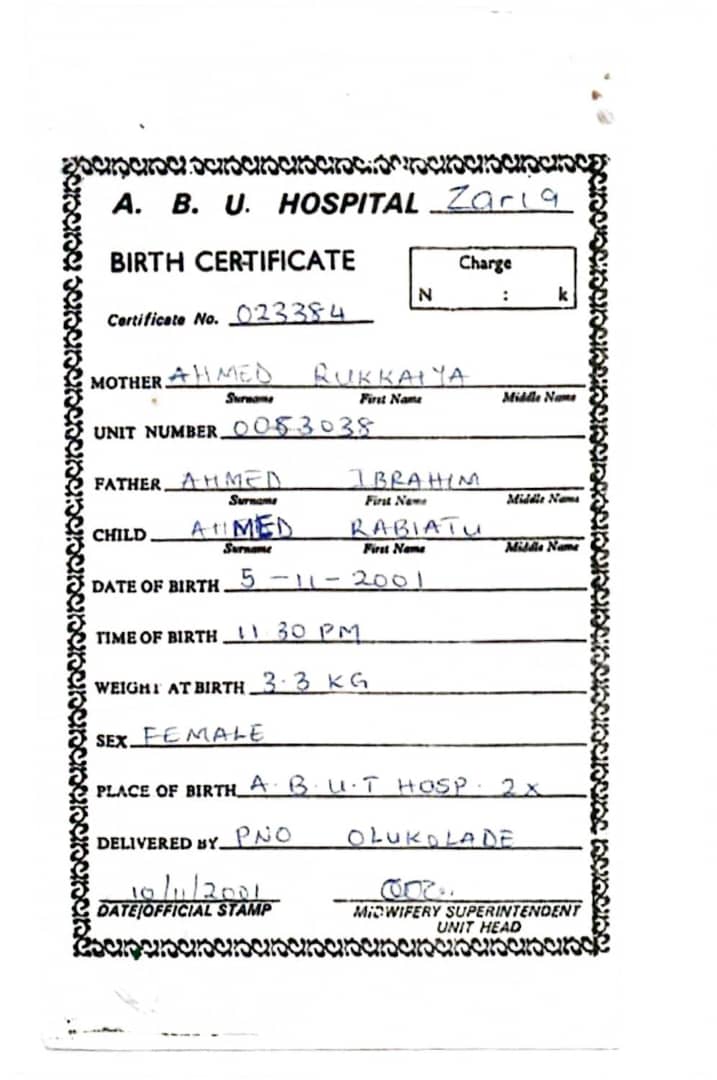 A. B. U. HOSPITAL Zaria
BIRTH CERTIFICATE
Charge
N : k
Certificate No. 023384
MOTHER AHMED RUKKAIYA
Surname First Name Middle Name
UNIT NUMBER 0053038
FATHER AHMED IBRAHIM
Surname First Name Middle Name
CHILD AHMED RABIATU
Surname First Name Middle Name
DATE OF BIRTH 5-11-2001
TIME OF BIRTH 11 30 PM
WEIGHT AT BIRTH 3.3 KG
SEX FEMALE
PLACE OF BIRTH A.B.U.T HOSP. ZX
DELIVERED BY PNO OLUKOLADE
10/11/2001
DATE/OFFICIAL STAMP
MIDWIFERY SUPERINTENDENT
UNIT HEAD